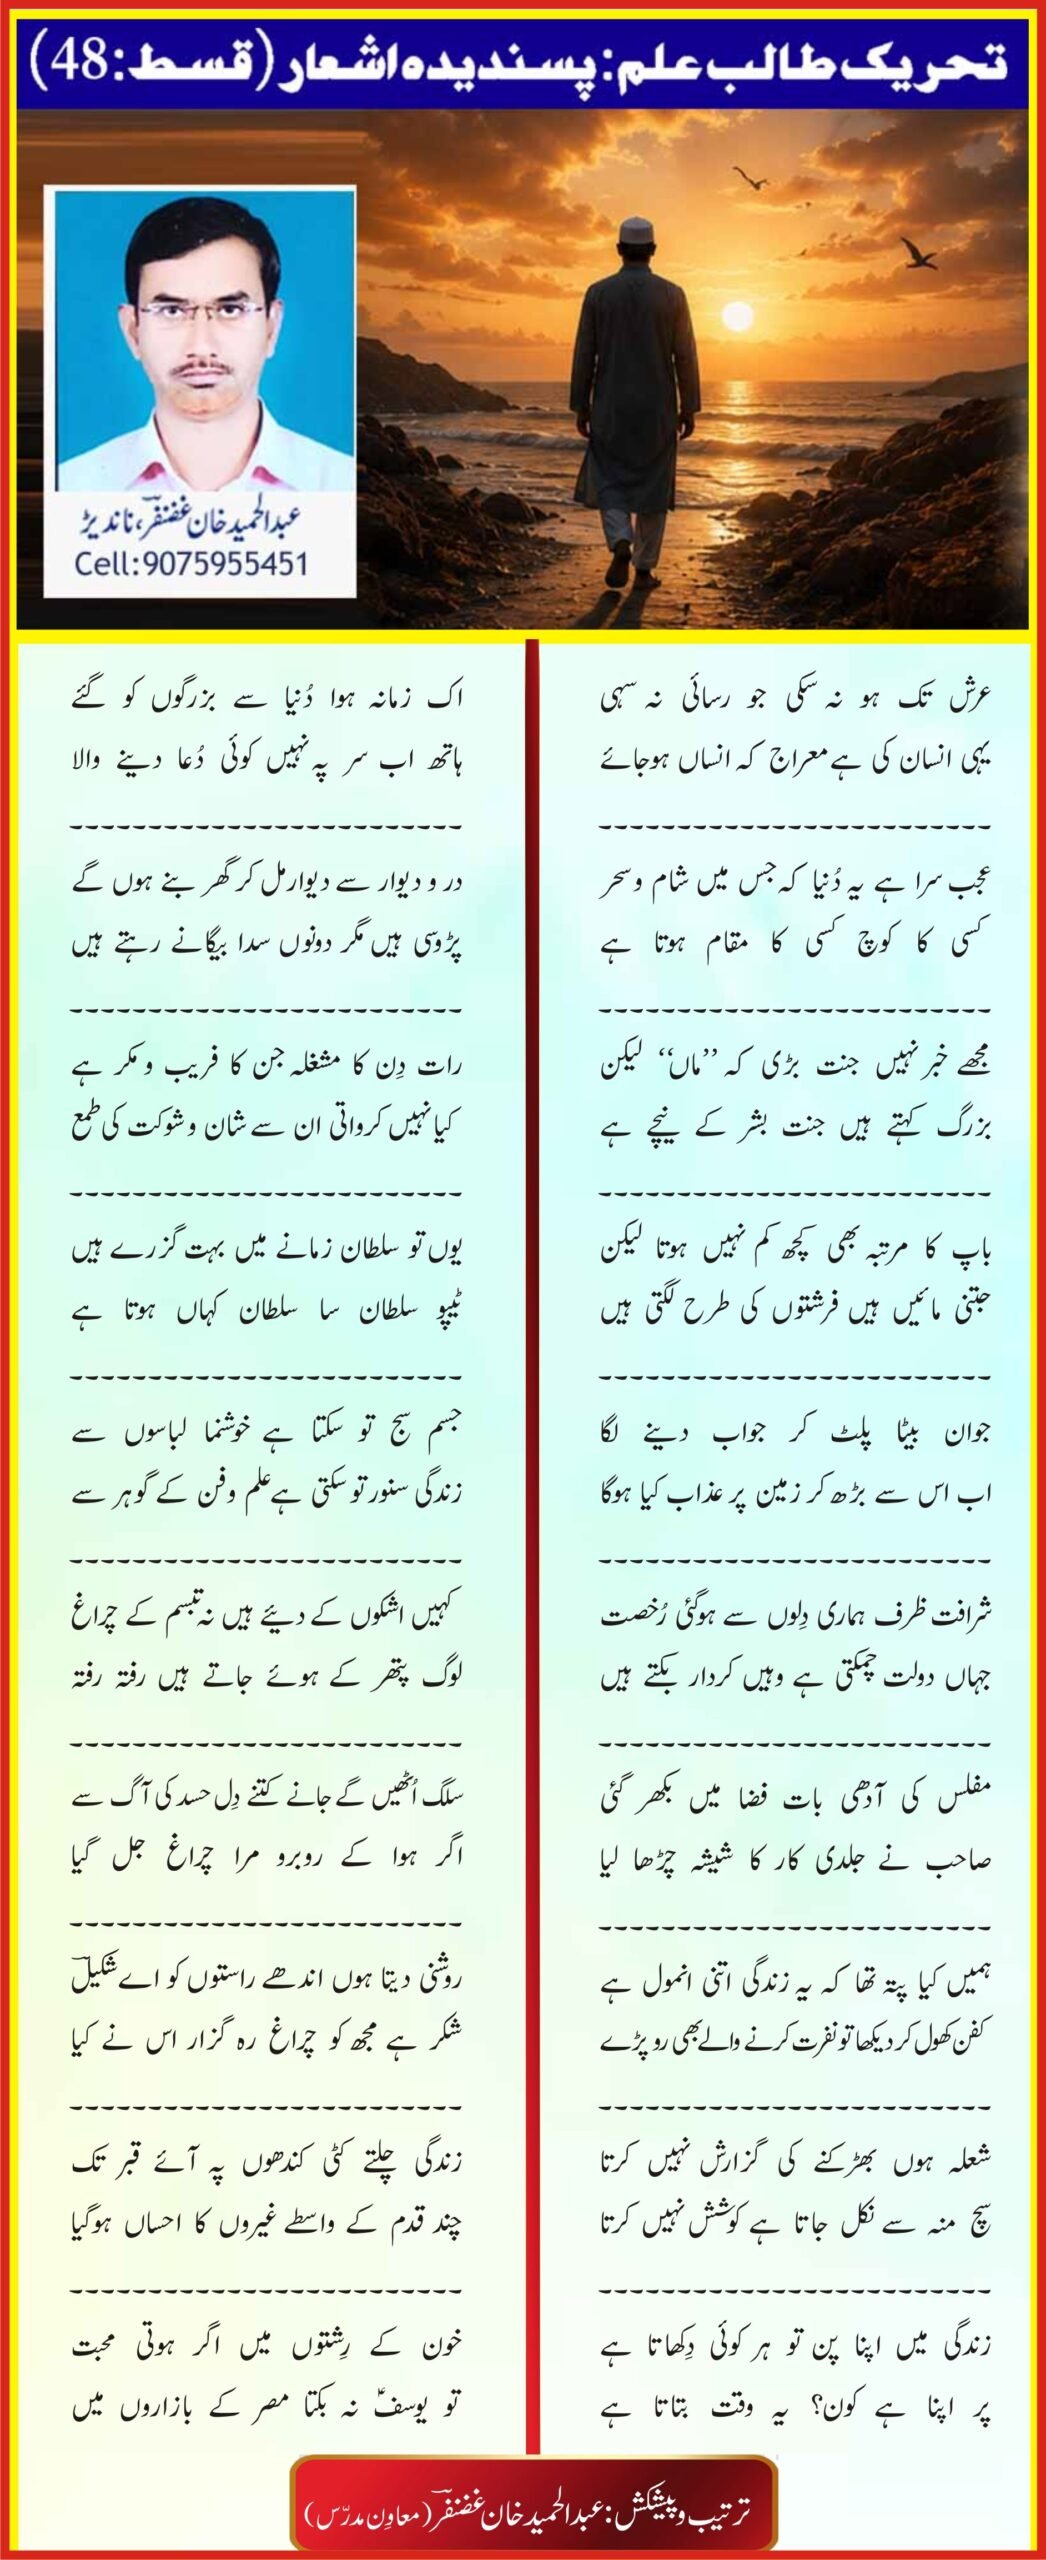 تحریک طالب علم: پسندیدہ اشعار (قسط:48)
عبدالحمید خان غضنفرؔ، ناندیڑ
Cell:9075955451
عرش تک ہو نہ سکی جو رسائی نہ سہی
یہی انسان کی ہے معراج کہ انساں ہوجائے
عجب سرا ہے یہ دُنیا کہ جس میں شام و سحر
کسی کا کوچ کسی کا مقام ہوتا ہے
مجھے خبر نہیں جنت بڑی کہ ’’ماں‘‘ لیکن
بزرگ کہتے ہیں جنت بشر کے نیچے ہے
باپ کا مرتبہ بھی کچھ کم نہیں ہوتا لیکن
جتنی مائیں ہیں فرشتوں کی طرح لگتی ہیں
جوان بیٹا پلٹ کر جواب دینے لگا
اب اس سے بڑھ کر زمین پر عذاب کیا ہوگا
شرافت ظرف ہماری دِلوں سے ہوگئی رُخصت
جہاں دولت چمکتی ہے وہیں کردار بکتے ہیں
مفلس کی آدھی بات فضا میں بکھر گئی
صاحب نے جلدی کار کا شیشہ چڑھا لیا
ہمیں کیا پتہ تھا کہ یہ زندگی اتنی انمول ہے
کفن کھول کر دیکھا تو نفرت کرنے والے بھی رو پڑے
شعلہ ہوں بھڑکنے کی گزارش نہیں کرتا
سچ منہ سے نکل جاتا ہے کوشش نہیں کرتا
زندگی میں اپنا پن تو ہر کوئی دِکھاتا ہے
پر اپنا ہے کون؟ یہ وقت بتاتا ہے
اک زمانہ ہوا دُنیا سے بزرگوں کو گئے
ہاتھ اب سر پہ نہیں کوئی دُعا دینے والا
در و دیوار سے دیوار مل کر گھر بنے ہوں گے
پڑوسی ہیں مگر دونوں سدا بیگانے رہتے ہیں
رات دِن کا مشغلہ جن کا فریب و مکر ہے
کیا نہیں کرواتی ان سے شان و شوکت کی طمع
یوں تو سلطان زمانے میں بہت گزرے ہیں
ٹیپو سلطان سا سلطان کہاں ہوتا ہے
جسم سج تو سکتا ہے خوشنما لباسوں سے
زندگی سنور تو سکتی ہے علم و فن کے گوہر سے
کہیں اشکوں کے دیئے ہیں نہ تبسم کے چراغ
لوگ پتھر کے ہوئے جاتے ہیں رفتہ رفتہ
سلگ اُٹھیں گے جانے کتنے دِل حسد کی آگ سے
اگر ہوا کے روبرو مرا چراغ جل گیا
روشنی دیتا ہوں اندھے راستوں کو اے شکیلؔ
شکر ہے مجھ کو چراغ رہ گزار اس نے کیا
زندگی چلتے کٹی کندھوں پہ آئے قبر تک
چند قدم کے واسطے غیروں کا احساں ہوگیا
خون کے رِشتوں میں اگر ہوتی محبت
تو یوسفؑ نہ بکتا مصر کے بازاروں میں
ترتیب و پیشکش: عبدالحمید خان غضنفرؔ (معاون مدرّس)